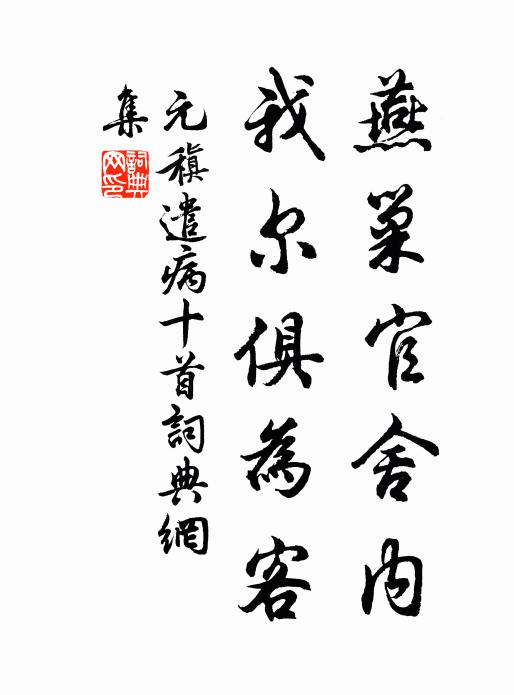 燕巢官舍内
我尔俱為客
元稹遣病十首詞典網
集
詞典网印